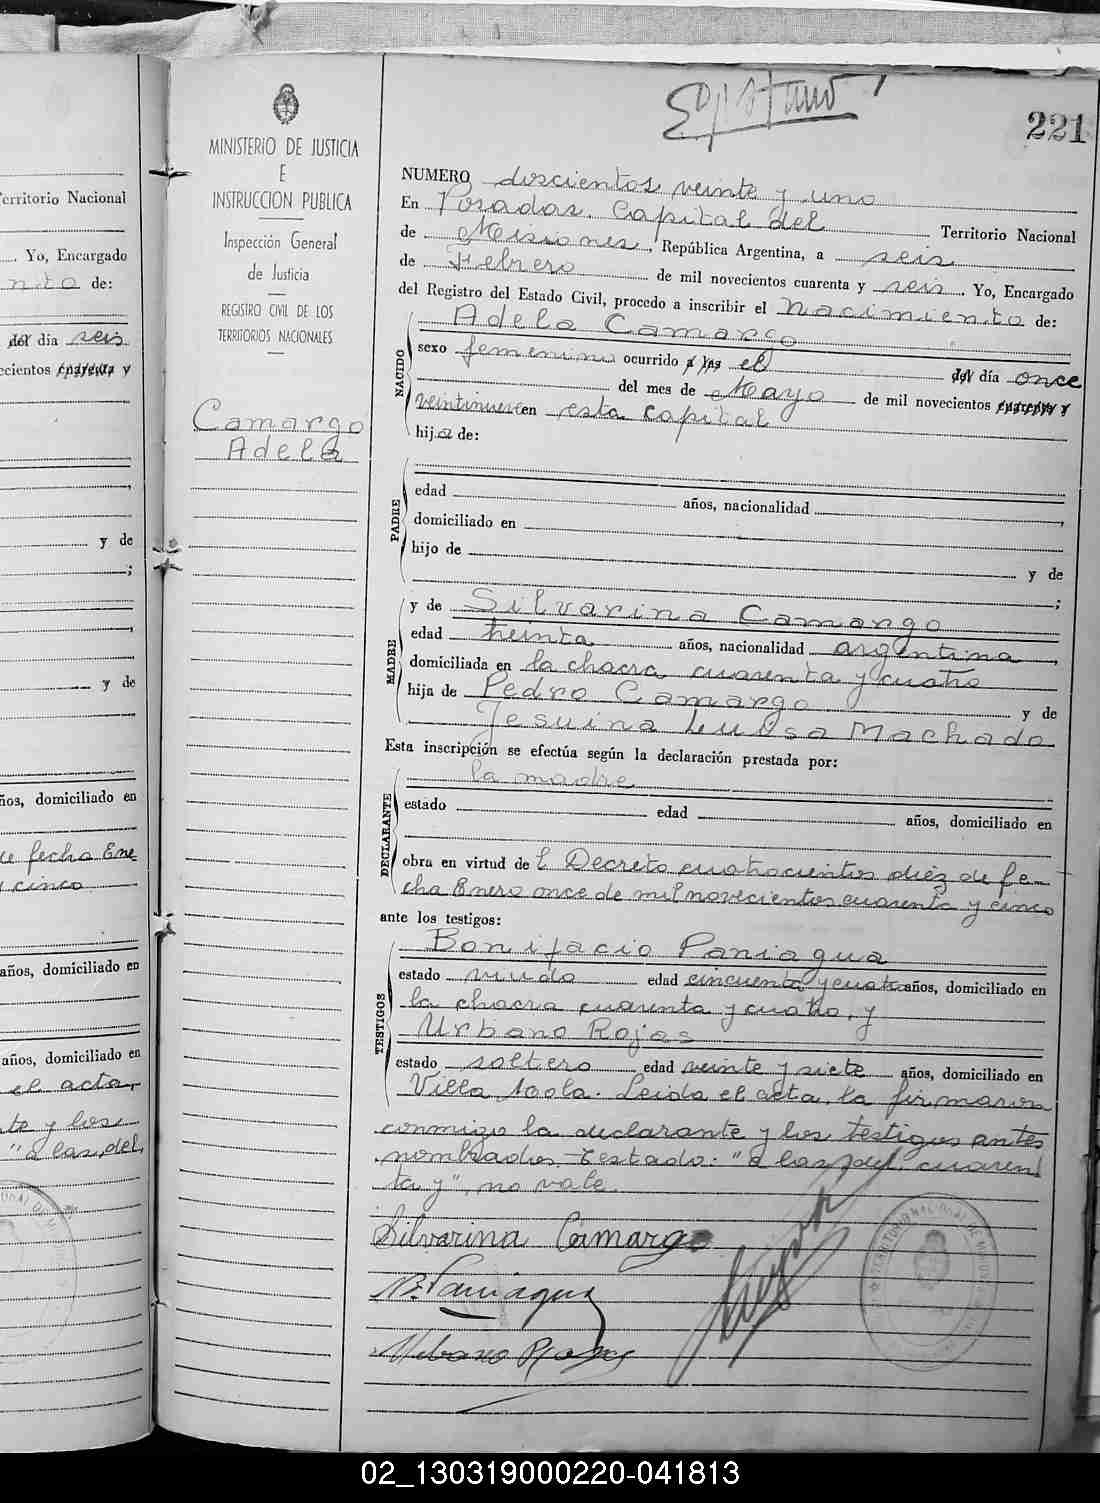 221
MINISTERIO DE JUSTICIA
E
INSTRUCCION PUBLICA
Inspección General
de Justicia
REGISTRO CIVIL DE LOS
TERRITORIOS NACIONALES
Camargo
Adela
NUMERO doscientos veinte y uno
En Posadas, Capital del Territorio Nacional
de Misiones, República Argentina, a seis
de Febrero de mil novecientos cuarenta y seis. Yo, Encargado
del Registro del Estado Civil, procedo a inscribir el Nacimiento de:
NACIDO
Adela Camargo
sexo femenino ocurrido a las el del día once
del mes de Mayo de mil novecientos cuarenta y
veintinueve en esta capital
hija de:
PADRE
edad años, nacionalidad ,
domiciliado en
hijo de y de
;
MADRE
y de Silvarina Camargo
edad treinta años, nacionalidad argentina,
domiciliada en la chacra cuarenta y cuatro
hija de Pedro Camargo y de
Jesuina Luisa Machado
Esta inscripción se efectúa según la declaración prestada por:
DECLARANTE
la madre
estado edad años, domiciliado en
obra en virtud del Decreto cuatrocientos diéz de fe-
cha Enero once de mil novecientos cuarenta y cinco
ante los testigos:
TESTIGOS
Bonifacio Paniagua
estado viudo edad cincuenta y cuatro años, domiciliado en
la chacra cuarenta y cuatro, y
Urbano Rojas
estado soltero edad veinte y siete años, domiciliado en
Villa . Leida el acta, la firmaron
conmigo la declarante y los testigos antes
nombrados. Testado: "a las, del, cuaren
ta y", no vale.
Silvarina Camargo
B. Paniagua
Urbano Rojas
erritorio Nacional
. Yo, Encargado
nto de:
del día seis
ecientos cuarenta y
,
y de
;
,
y de
ños, domiciliado en
fecha Ene
cinco
años, domiciliado en
años, domiciliado en
el acta,
te y los
"a las, del,
02_130319000220-041813